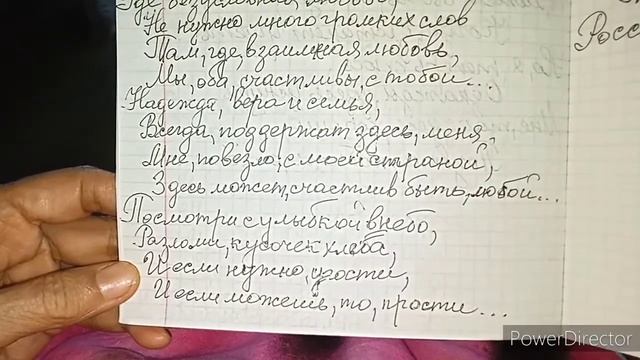 Где безусловная любовь,
Не нужно много громких слов
Там, где, взаимная любовь,
Мы, оба, счастливы, с тобой...
Надежда, вера и семья,
Всегда, поддержат здесь, меня,
Мне, повезло, с моей страной,
Здесь может, счастлив быть, любой...
Посмотри с улыбкой в небо,
Разломи, кусочек хлеба,
И если нужно, угости,
И если можешь, то, прости...
Росс
PowerDirector